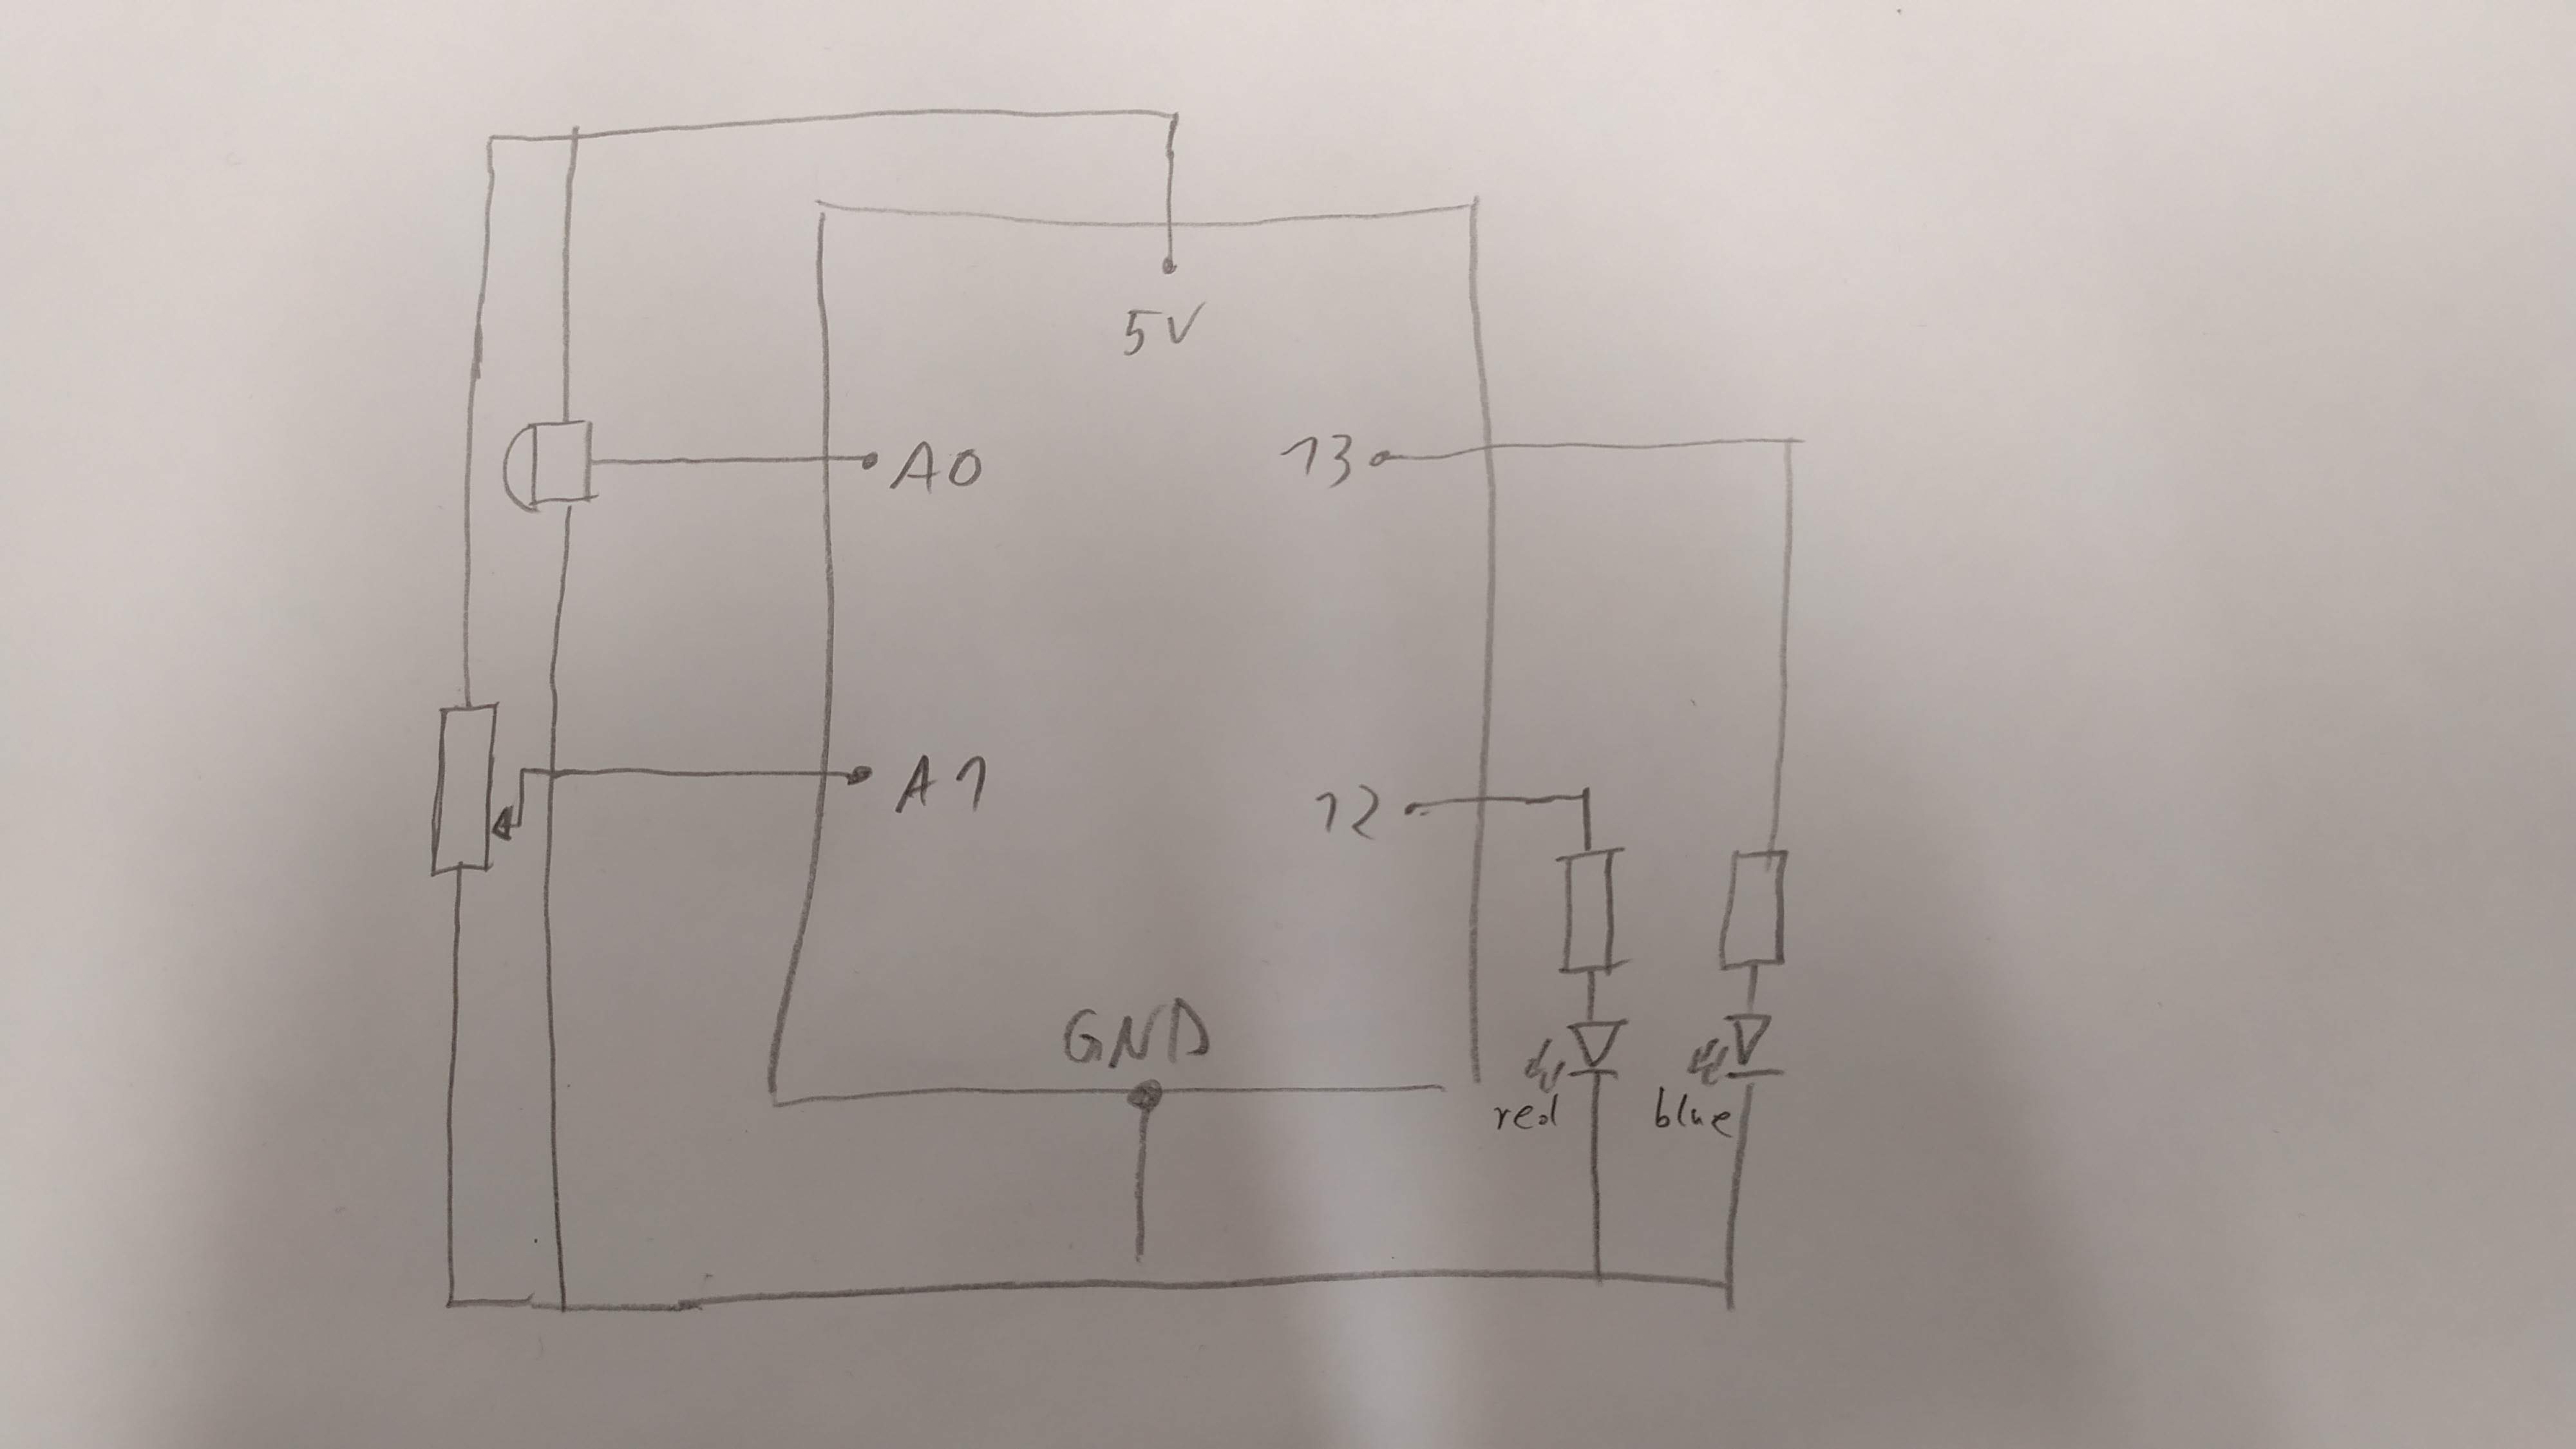 5V
A0
13
A1
12
GND
red
blue